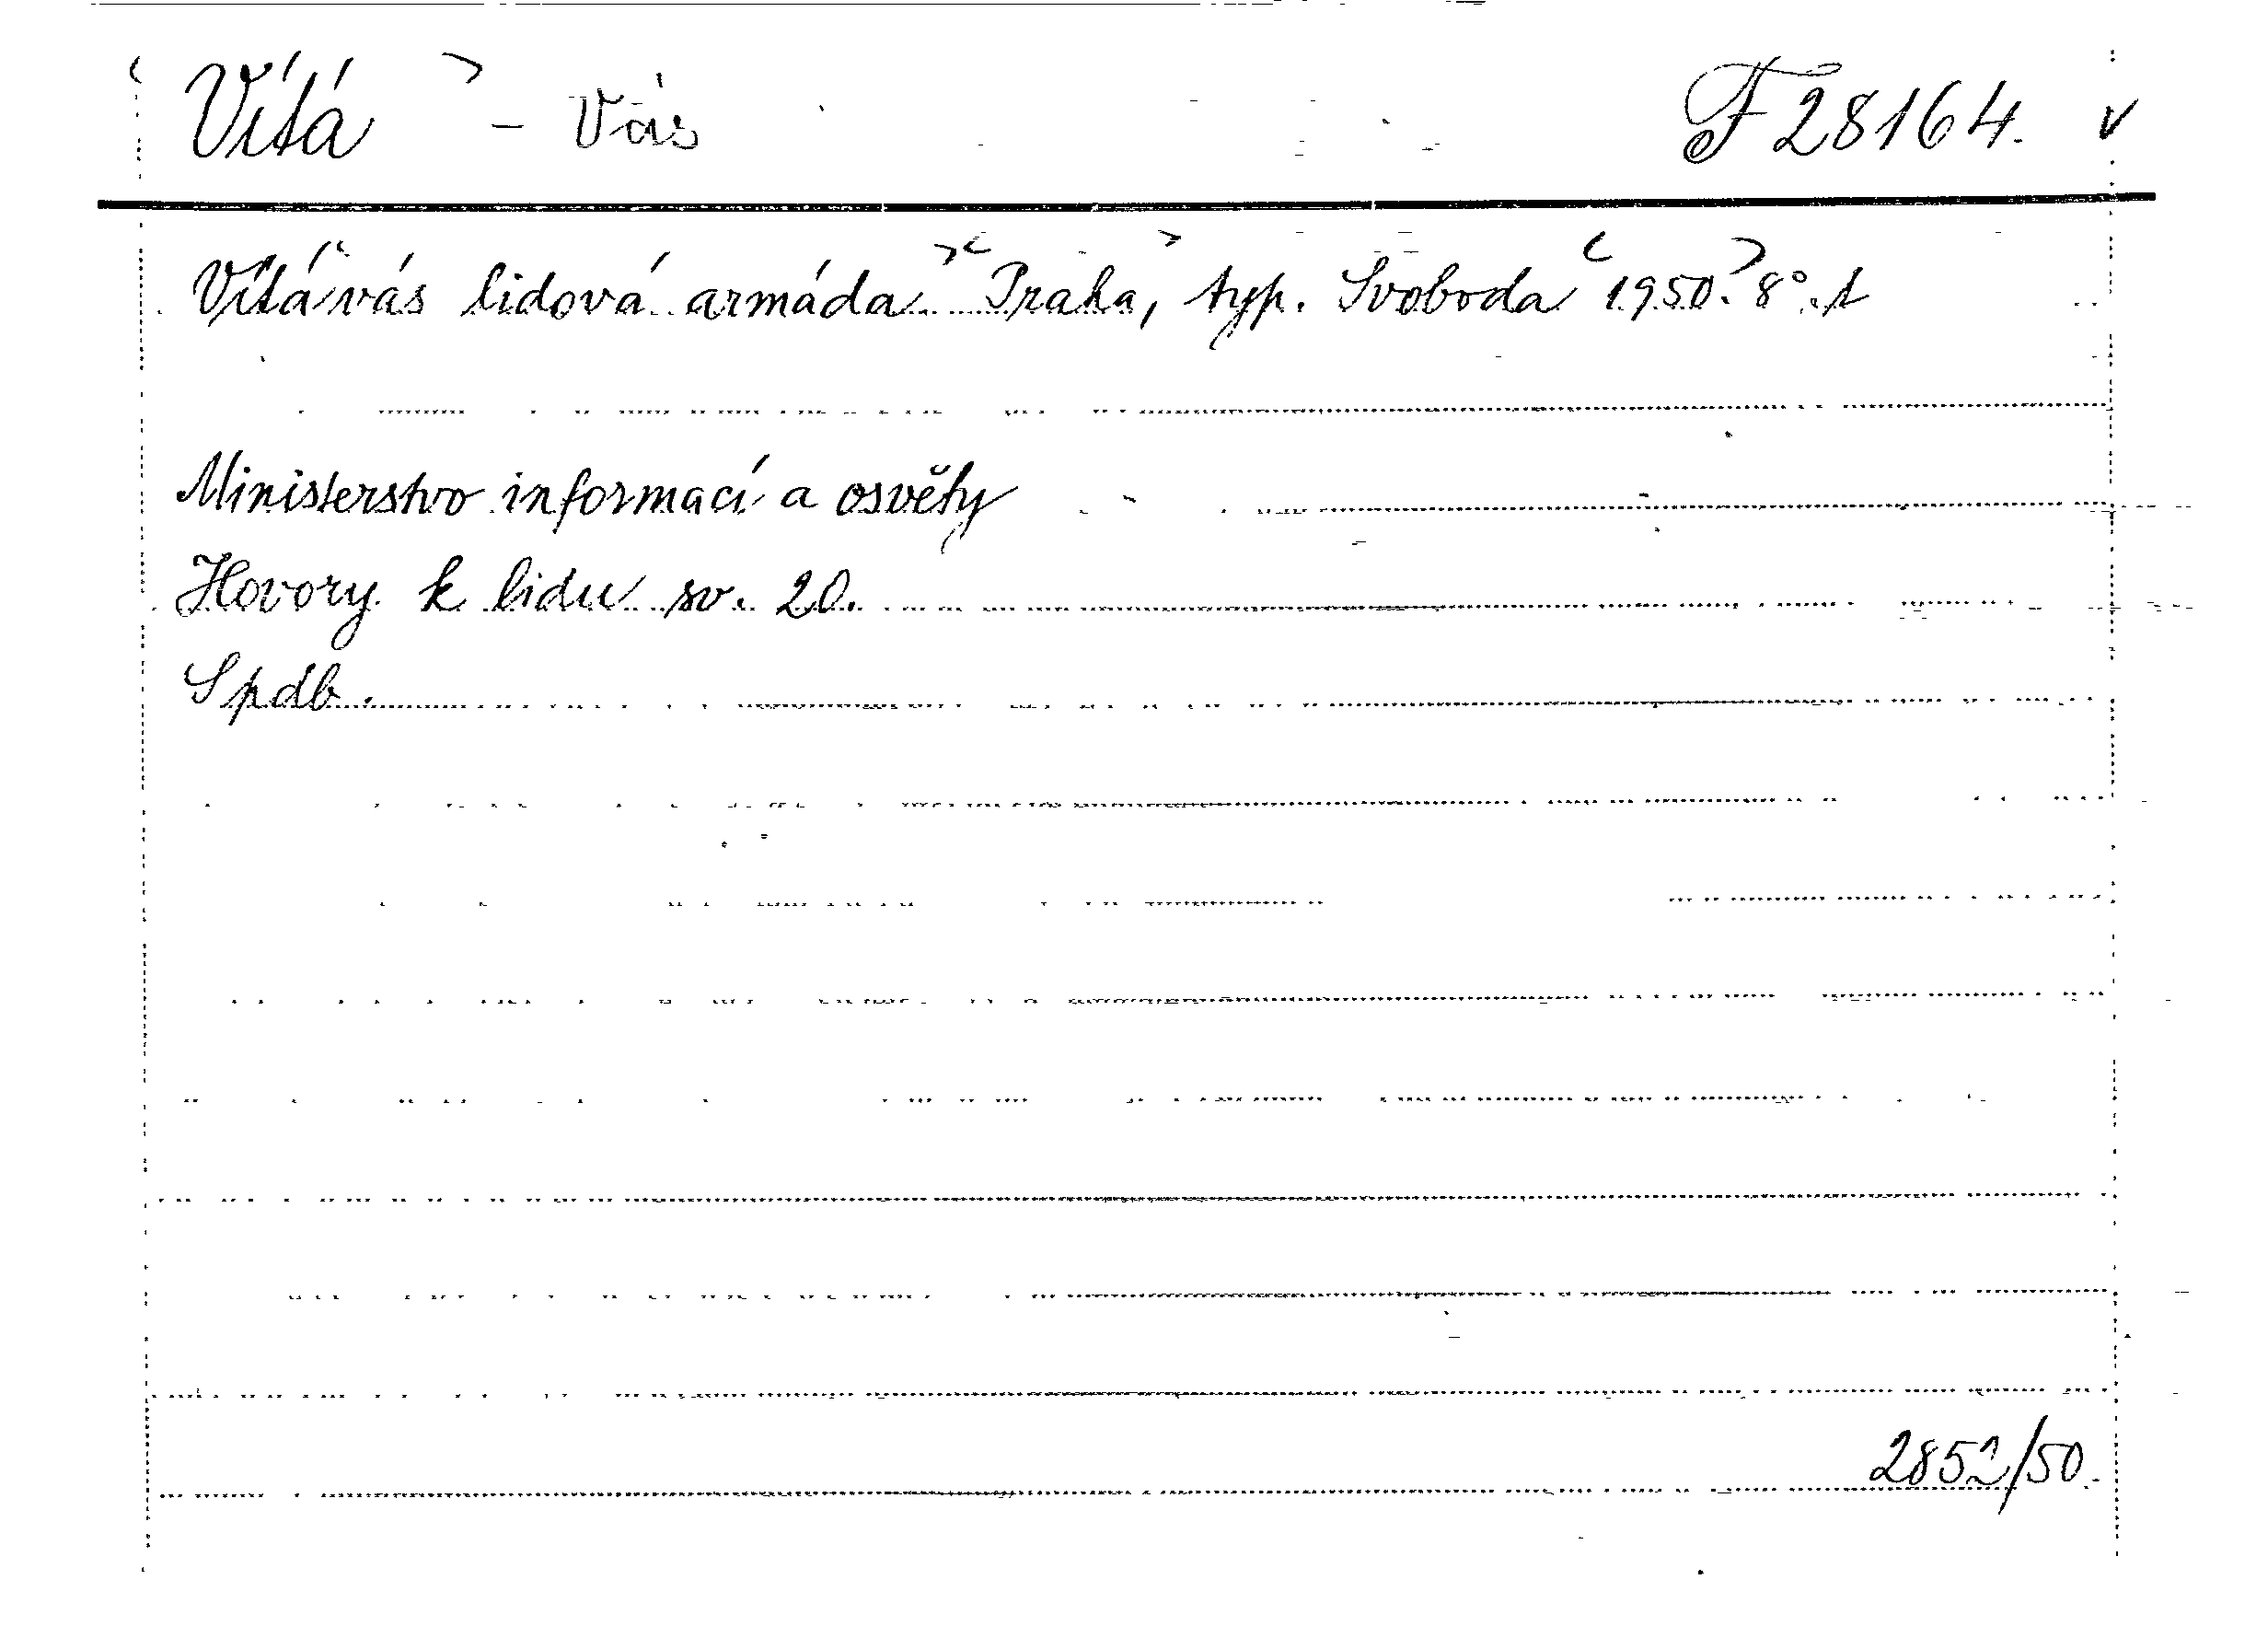 Vítá - Vás F 28164. v
Vítá vás lidová armáda. Praha, typ. Svoboda 1950. 8°.
Ministerstvo informací a osvěty
Hovory k lidu sv. 20.
Spdb.
2852/50.